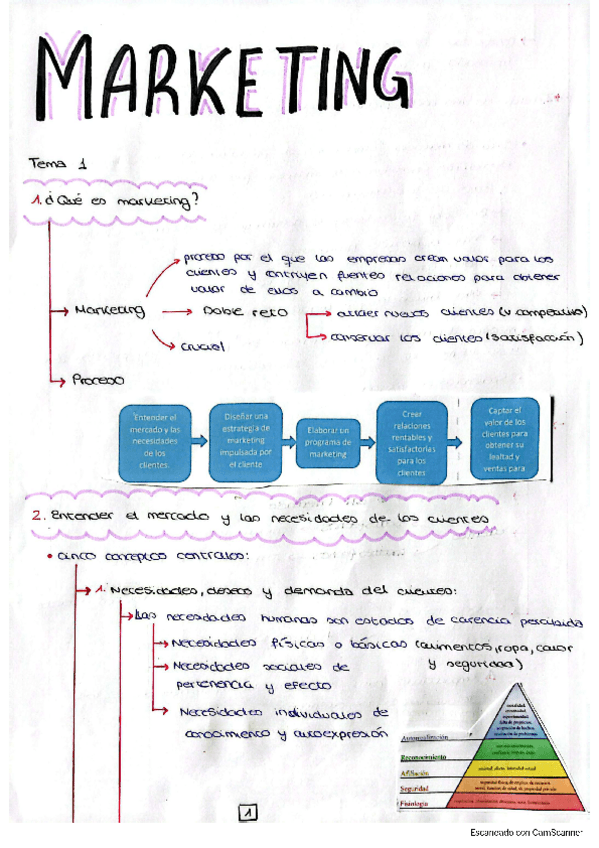 MARKETING
Tema 1
1. ¿Qué es marketing?
proceso por el que las empresas crean valor para los
clientes y contruyen fuentes relaciones para obtener
valor de ellos a cambio
Marketing
Doble reto
atraer nuevos clientes (v competitivo)
conservar los clientes (satisfacción)
crucial
Proceso
Entender el
mercado y las
necesidades
de los
clientes.
Diseñar una
estrategia de
marketing
impulsada por
el cliente
Elaborar un
programa de
marketing
Creer
relaciones
rentables y
satisfactorias
para los
clientes
Captar el
valor de los
clientes para
obtener su
lealtad y
ventas para
2. Entender el mercado y las necesidades de los clientes
• cinco conceptos centrales:
1. Necesidades, deseos y demanda del cliente:
Las necesidades humanas son estados de carencia percibida
Necesidades físicas o básicas (alimentos, ropa, calor
y seguridad)
Necesidades sociales de
pertenencia y efecto
Necesidades individuales de
conocimiento y autoexpresión
Autorrealización
Reconocimiento
Afiliación
Seguridad
Fisiología
1
Escaneado con CamScanner